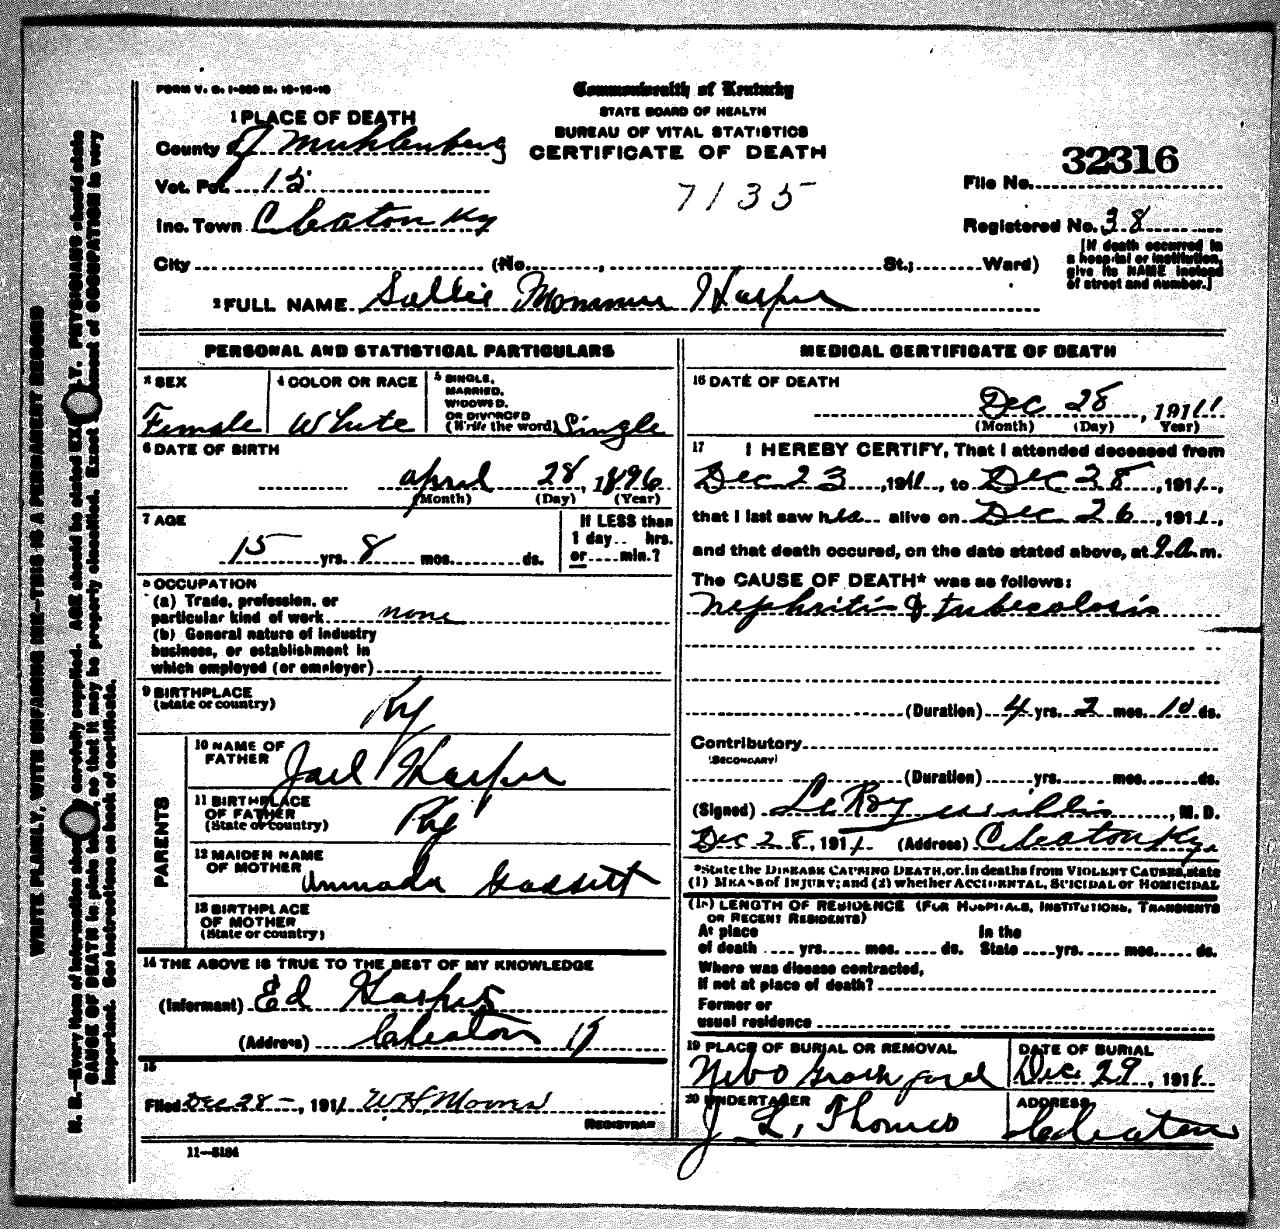 FORM V. S. 1-
Commonwealth of Kentucky
STATE BOARD OF HEALTH
BUREAU OF VITAL STATISTICS
CERTIFICATE OF DEATH
1 PLACE OF DEATH
County of Muhlenberg
Vot. Pct. 15
Inc. Town Cleaton Ky
City (No. , St.; Ward)
7135
File No. 32316
Registered No. 38
[If death occurred in
a hospital or institution,
give its NAME instead
of street and number.]
2 FULL NAME Sallie Harper
PERSONAL AND STATISTICAL PARTICULARS
3 SEX
Female
4 COLOR OR RACE
White
5 SINGLE,
MARRIED,
WIDOWED,
OR DIVORCED
(Write the word) Single
6 DATE OF BIRTH
April 28, 1896
(Month) (Day) (Year)
7 AGE
15 yrs. 8 mos. ds.
If LESS than
1 day.. hrs.
or min.?
8 OCCUPATION
(a) Trade, profession, or
particular kind of work none
(b) General nature of industry
business, or establishment in
which employed (or employer)
9 BIRTHPLACE
(State or country)
Ky
PARENTS
10 NAME OF
FATHER Harper
11 BIRTHPLACE
OF FATHER
(State or country) Ky
12 MAIDEN NAME
OF MOTHER
13 BIRTHPLACE
OF MOTHER
(State or country)
14 THE ABOVE IS TRUE TO THE BEST OF MY KNOWLEDGE
(Informant) Ed Harper
(Address) Cleaton Ky
15
Filed Dec 28 - , 1911 W H Moores
REGISTRAR
11—5184
MEDICAL CERTIFICATE OF DEATH
16 DATE OF DEATH
Dec 28 , 1911
(Month) (Day) Year)
17 I HEREBY CERTIFY, That I attended deceased from
Dec 23 , 1911, to Dec 28, 1911,
that I last saw her alive on Dec 26, 1911,
and that death occured, on the date stated above, at 9.a.m.
The CAUSE OF DEATH* was as follows:
Nephritis & tubecolosis
(Duration) 4 yrs. 2 mos. 10 ds.
Contributory
(SECONDARY)
(Duration) yrs. mos. ds.
(Signed) LeRoy Willis, M. D.
Dec 28, 1911 (Address) Cleaton Ky.
*State the DISEASE CAUSING DEATH, or, in deaths from VIOLENT CAUSES, state
(1) MEANS of INJURY; and (2) whether ACCIDENTAL, SUICIDAL or HOMICIDAL
LENGTH OF RESIDENCE (FOR HOSPITALS, INSTITUTIONS, TRANSIENTS
OR RECENT RESIDENTS)
At place In the
of death yrs. mos. ds. State yrs. mos. ds.
Where was disease contracted,
If not at place of death?
Former or
usual residence
19 PLACE OF BURIAL OR REMOVAL
Nebo
DATE OF BURIAL
Dec 29, 1911
20 UNDERTAKER
J. L. Thomas
ADDRESS
Cleaton
WRITE PLAINLY, WITH UNFADING INK—THIS IS A PERMANENT RECORD
N. B.—Every item of information should be carefully supplied. AGE should be stated EXACTLY. PHYSICIANS should state
CAUSE OF DEATH in plain terms, so that it may be properly classified. Exact statement of OCCUPATION is very
important. See instructions on back of certificate.